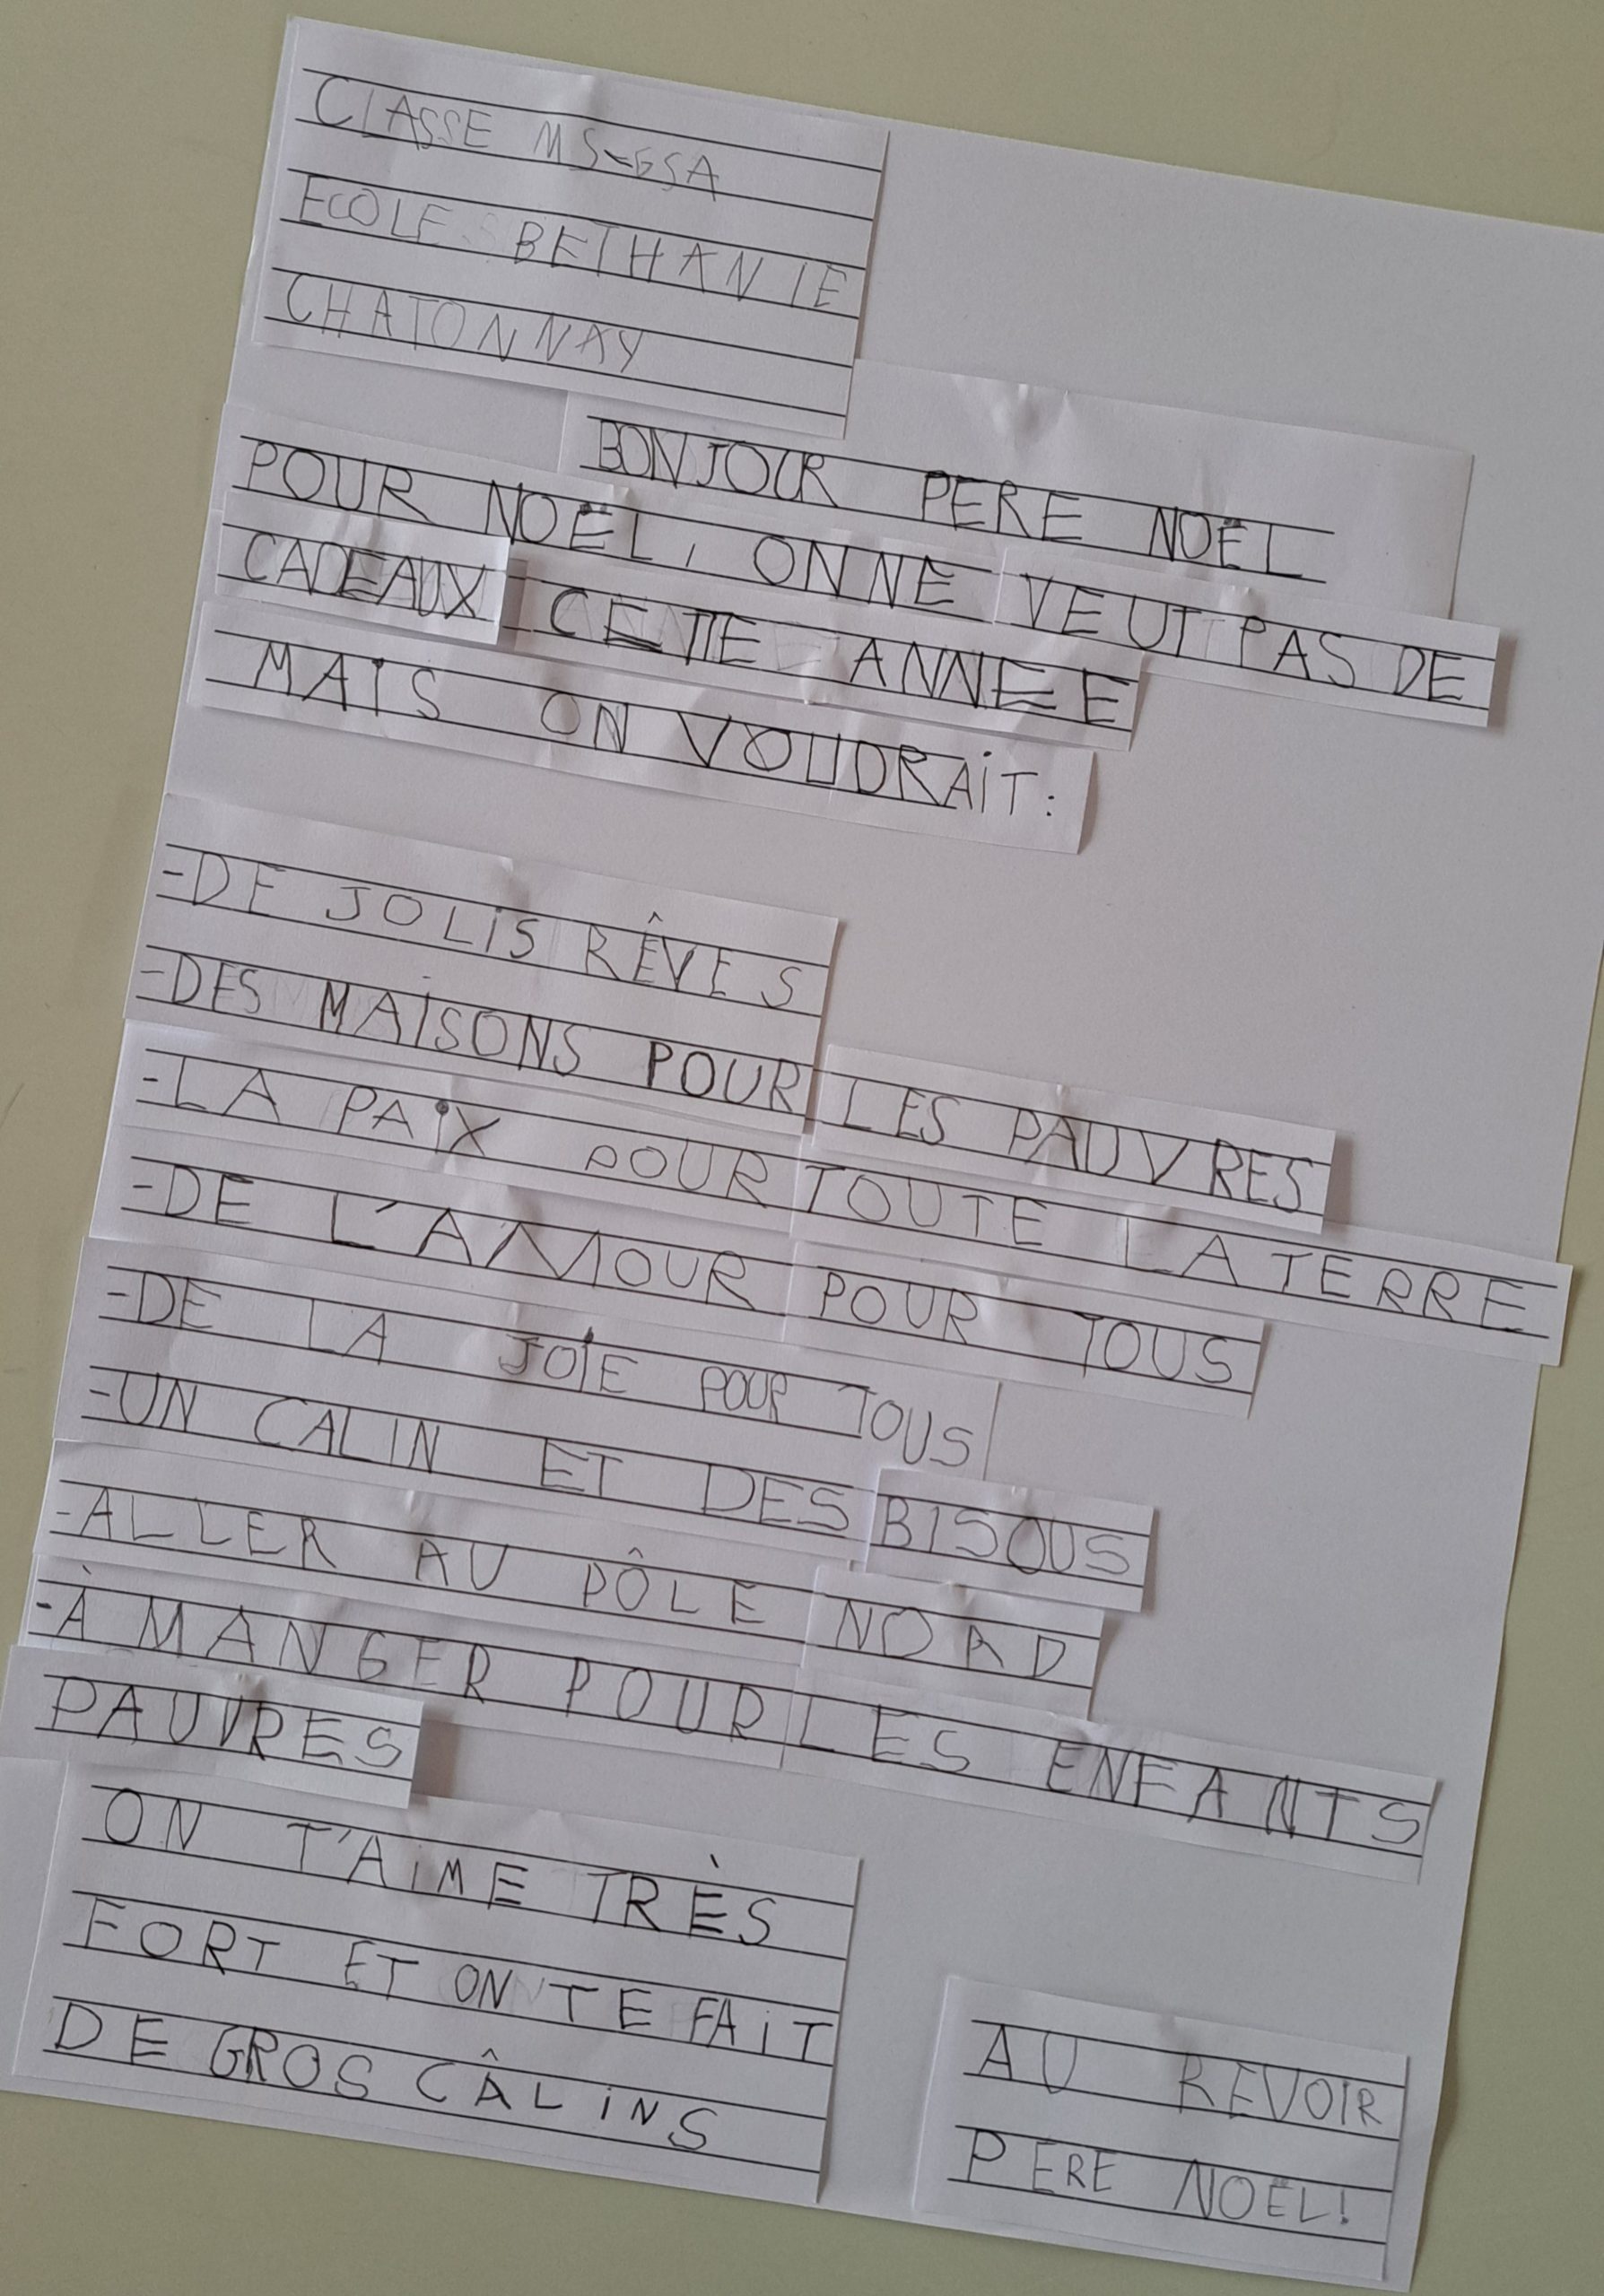 CLASSE MS-GSA
ECOLE BETHANIE
CHATONNAY
BONJOUR PERE NOËL
POUR NOËL, ON NE VEUT PAS DE
CADEAUX CETTE ANNEE
MAIS ON VOUDRAIT:
-DE JOLIS RÊVES
-DES MAISONS POUR LES PAUVRES
-LA PAIX POUR TOUTE LA TERRE
-DE L'AMOUR POUR TOUS
-DE LA JOIE POUR TOUS
-UN CALIN ET DES BISOUS
-ALLER AU PÔLE NORD
-À MANGER POUR LES ENFANTS
PAUVRES
ON T'AIME TRÈS
FORT ET ON TE FAIT
DE GROS CÂLINS
AU REVOIR
PERE NOËL!